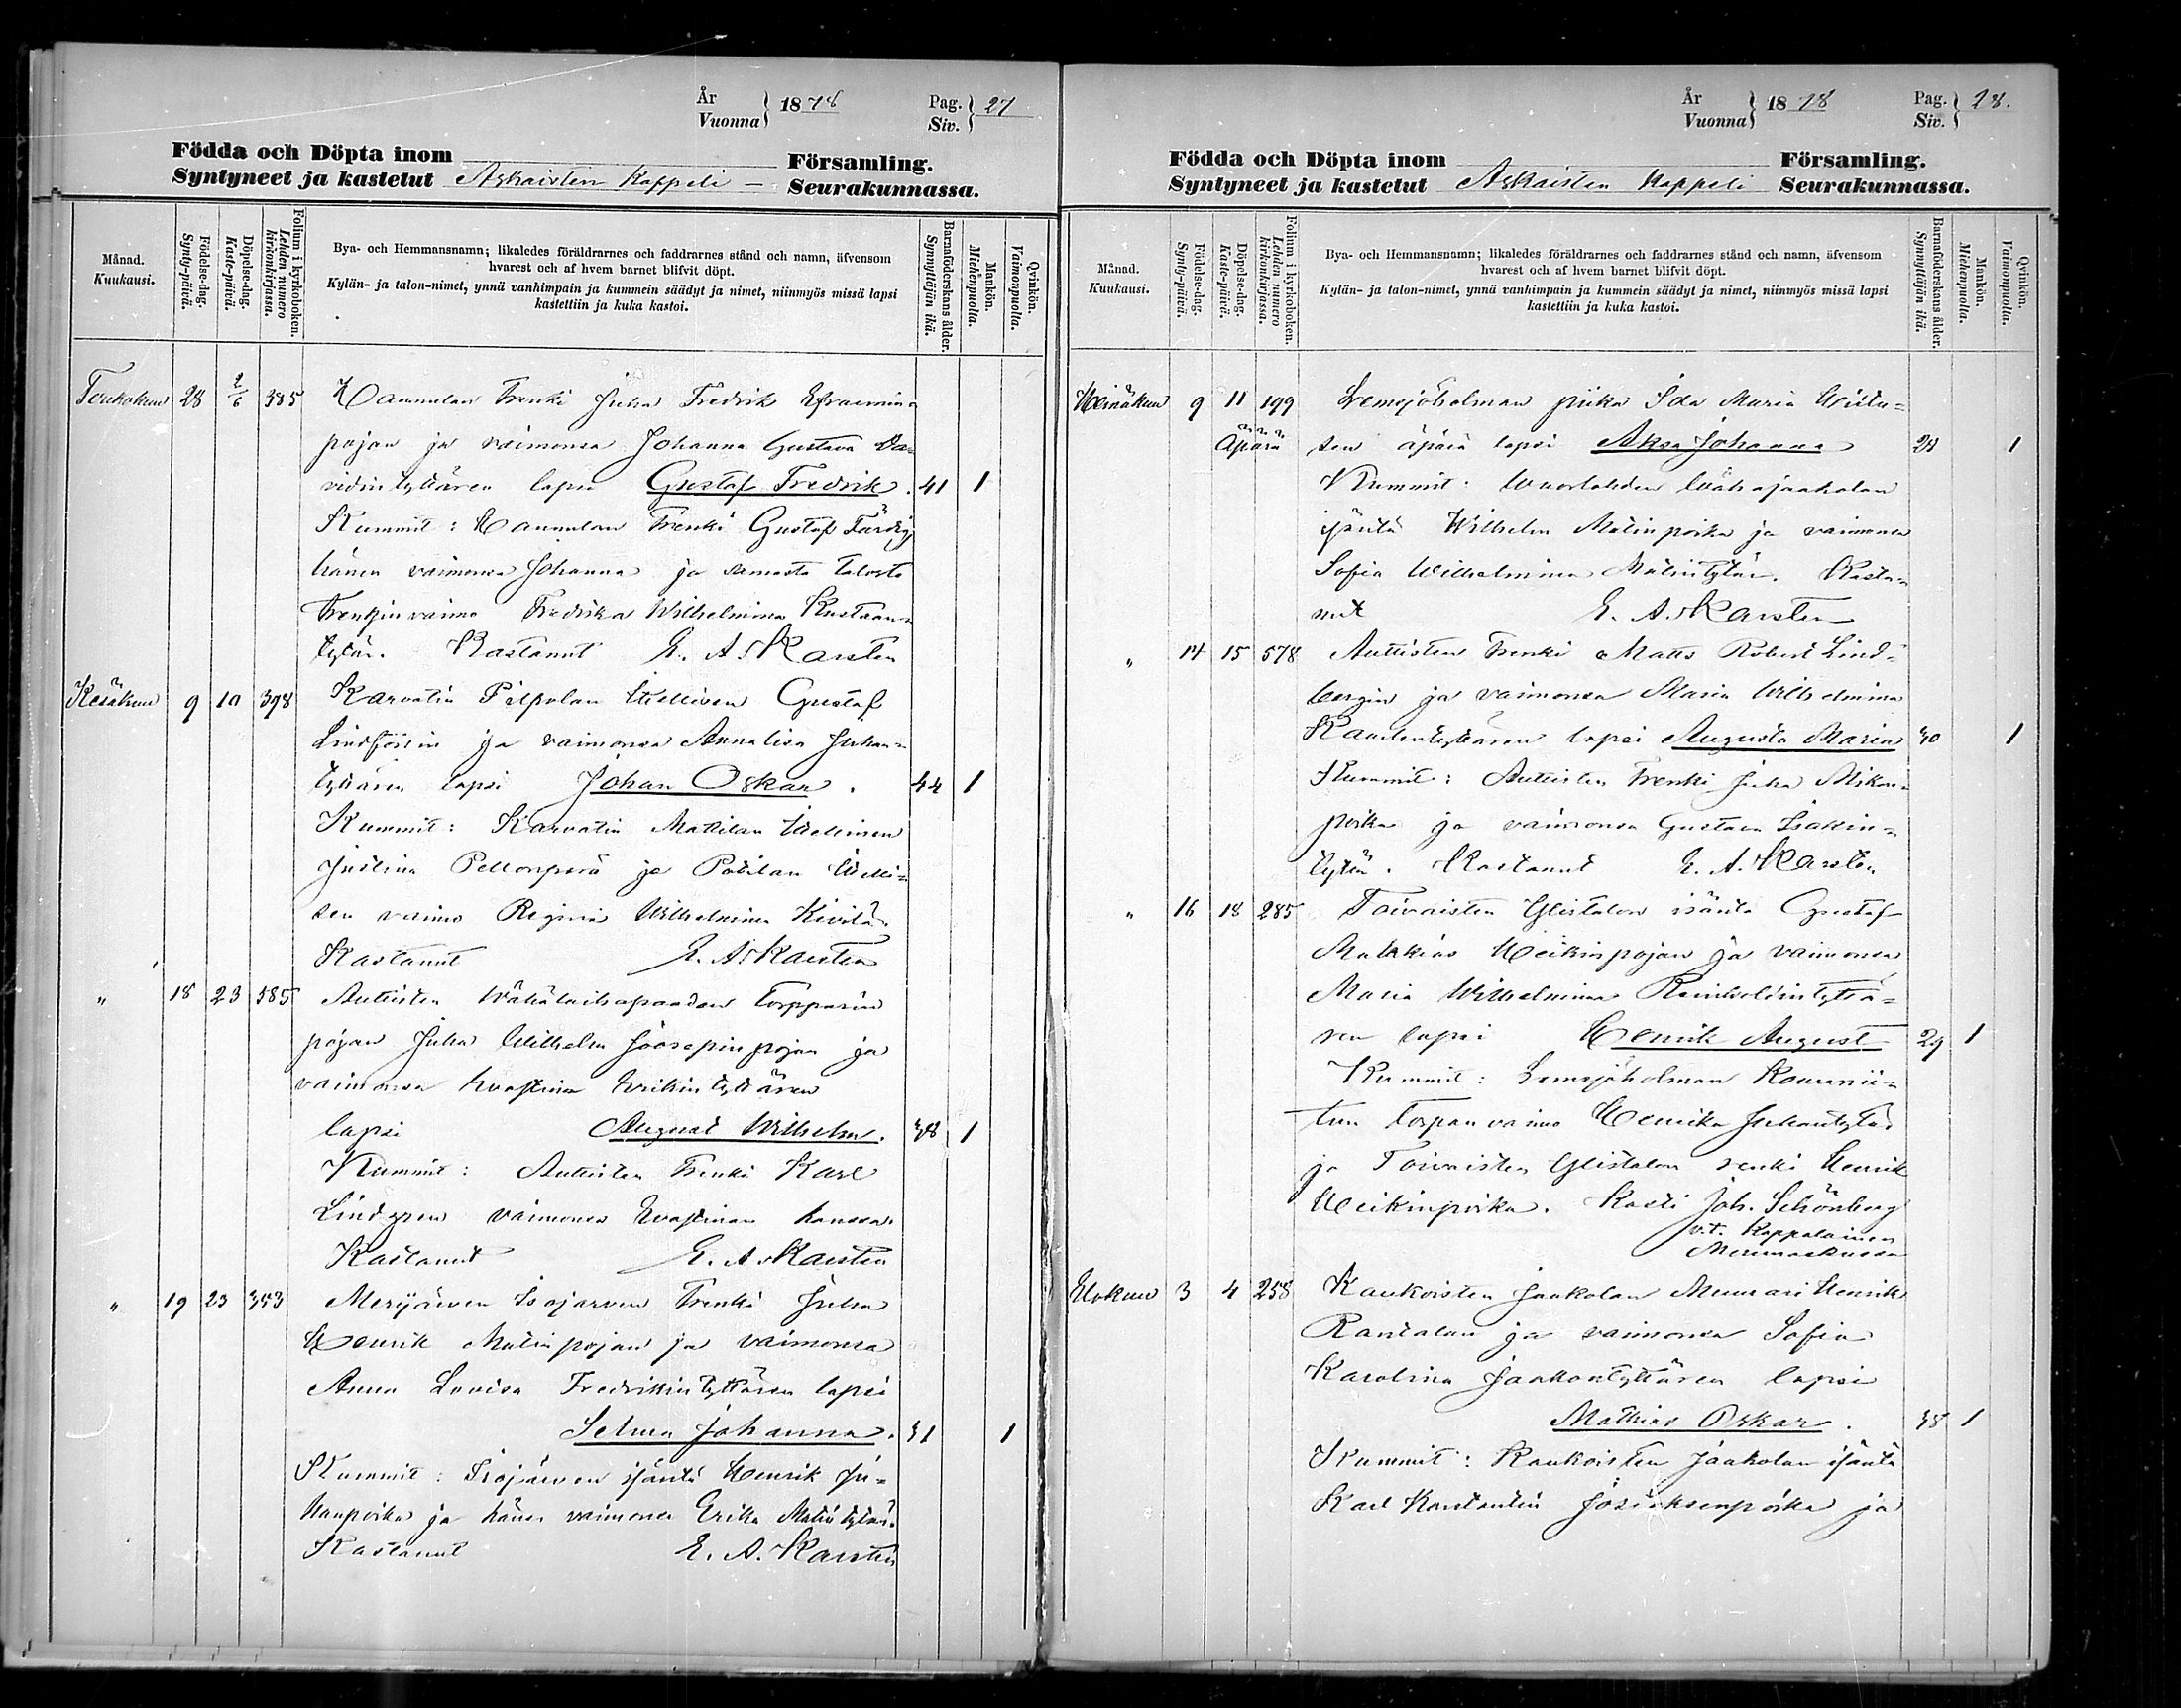 År
Vuonna } 1878 Pag.
Siv. } 27
Födda och Döpta inom Församling.
Syntyneet ja kastetut Askaisten Kappeli – Seurakunnassa.
Månad.
Kuukausi.
Födelse-dag.
Synty-päivä.
Döpelse-dag.
Kaste-päivä.
Folium i kyrkoboken.
Lehden numero
kirkonkirjassa.
Bya- och Hemmansnamn; likaledes föräldrarnes och faddrarnes stånd och namn, äfvensom
hvarest och af hvem barnet blifvit döpt.
Kylän- ja talon-nimet, ynnä vanhimpain ja kummein säädyt ja nimet, niinmyös missä lapsi
kastettiin ja kuka kastoi.
Barnaföderskans ålder.
Synnyttäjän ikä.
Mankön.
Miehenpuolia.
Qvinkön.
Vaimonpuolia.
Toukokuu 28 2/6 385 Trenki Juha Fredrik Efraimin
pojan ja vaimonsa Johanna Gustava Da-
vidintyttären lapsi Gustaf Fredrik. 41 1
Kummit: Trenki Gustaf Färdig
hänen vaimonsa Johanna ja samasta talosta
trenkin vaimo Fredrika Wilhelmina Kustaan-
tytär. Kastanut E. A. Karsten
Kesäkuu 9 10 398 Karvatin Pilpolan Gustaf
Lindforsin ja vaimonsa Annalisa Juhan-
tyttären lapsi Johan Oskar. 44 1
Kummit: Karvatin Mattilan
Justina Pellonperä ja
sen vaimo Regina Wilhelmina Kivilä
Kastanut E. A. Karsten
" 18 23 585 Autuisten torpparin
pojan Juha Wilhelm Joosepinpojan ja
vaimonsa Evastina Erikintyttären
lapsi August Wilhelm. 38 1
Kummit: Autuisten Trenki Karl
Lindgren vaimonsa Evastinan kanssa.
Kastanut E. A. Karsten
" 19 23 353 Merijärven Isojärven Trenki Juha
Henrik Matinpojan ja vaimonsa
Anna Lovisa Fredrikintyttären lapsi
Selma Johanna. 31 1
Kummit: Isojärven isäntä Henrik Ju-
hanpoika ja hänen vaimonsa Erika Matintytär.
Kastanut E. A. Karsten
År
Vuonna } 1878 Pag.
Siv. } 28.
Födda och Döpta inom Församling.
Syntyneet ja kastetut Askaisten Kappeli Seurakunnassa.
Månad.
Kuukausi.
Födelse-dag.
Synty-päivä.
Döpelse-dag.
Kaste-päivä.
Folium i kyrkoboken.
Lehden numero
kirkonkirjassa.
Bya- och Hemmansnamn; likaledes föräldrarnes och faddrarnes stånd och namn, äfvensom
hvarest och af hvem barnet blifvit döpt.
Kylän- ja talon-nimet, ynnä vanhimpain ja kummein säädyt ja nimet, niinmyös missä lapsi
kastettiin ja kuka kastoi.
Barnaföderskans ålder.
Synnyttäjän ikä.
Mankön.
Miehenpuolia.
Qvinkön.
Vaimonpuolia.
Heinäkuu 9 11 199 Lemsjöholman piika Ida Maria
Äpärä sen äpärä lapsi Aksa Johanna 1
Kummit: Wuorlahden Wähäjaakolan
isäntä Wilhelm Matinpoika ja vaimonsa
Sofia Wilhelmina Matintytär. Kasta-
nut E. A. Karsten
" 14 15 578 Autuisten Trenki Matts Robert Lind-
bergin ja vaimonsa Maria Wilhelmina
lapsi Augusta Maria 30 1
Kummit: Autuisten Trenki Juha
poika ja vaimonsa Gustava Isakin-
tytär. Kastanut E. A. Karsten
" 16 18 285 Toivaisten Ylistalon isäntä Gustaf
Mathias Heikinpojan ja vaimonsa
Maria Wilhelmina Reinholdintyttä-
ren lapsi Henrik August 29 1
Kummit: Lemsjöholman
tun torpan vaimo Henrika Juhantytär
ja Toivaisten Ylistalon renki Henrik
Heikinpoika. Kasti Joh. Schönberg
v.t. Kappalainen
Merimaskussa
Elokuu 3 4 258 Kaukoisten Jaakolan Muurari Henrik
Rantalan ja vaimonsa Sofia
Karolina Jaakontyttären lapsi
Mathias Oskar. 38 1
Kummit: Kaukoisten Jaakolan isäntä
Karl Konstantin ja